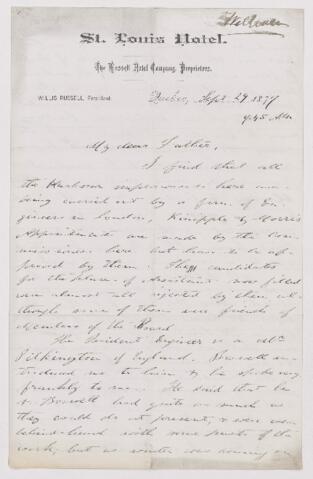 St. Louis Hotel.
The Russell Hotel Company, Proprietors.
WILLIS RUSSELL, President.
Quebec, Sept. 29 1877
9.45 AM
My dear Father,
I find that all
the Harbour improvements here are
being carried out by a firm of En-
gineers in London, Kinipple & Morris
Appointments are made by the Com-
missioners here but have to be ap-
proved by them. The candidates
for the place of Assistant now filled
were almost all rejected by them al-
though some of them were friends of
Members of the Board
The Resident Engineer is a Mr.
Pilkington of England. Boswell in-
troduced me to him & he spoke very
frankly to me. He said that he
& Boswell had quite as much as
they could do at present, & were even
behind-hand with some parts of the
work, but as winter was coming on